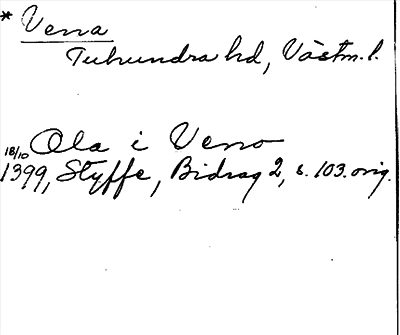 * Vena
Tuhundra hd, Västm. l.
Ola i Veno
18/10
1399, Styffe, Bidrag 2, s. 103. orig.